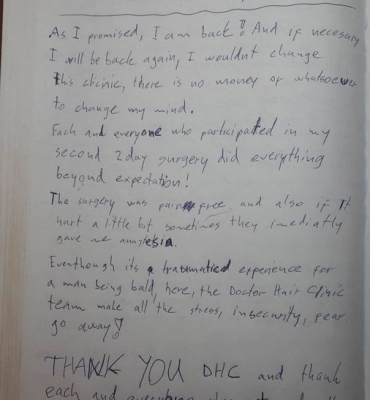 As I promised, I am back! And if necesary
I will be back again, I wouldnt change
this clinic, there is no money or whatsoever
to change my mind.
Each and everyone who participated in my
second 2day surgery did everything
beyond expectation!
The surgery was pain free and also if it
hurt a little bit sometimes they imediatly
gave me
Eventhough its a experience for
a man being bald, here, the Doctor Hair Clinic
team make all the stress, insecurity, fear
go away!
THANK YOU DHC and thank
each and